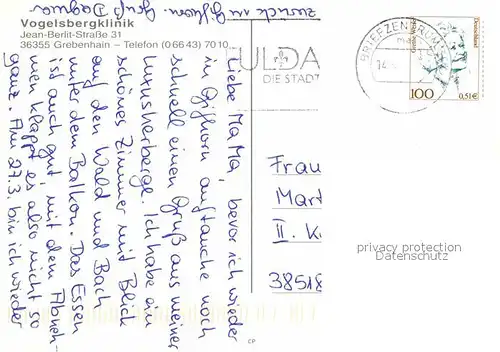 Vogelsbergklinik
Jean-Berlit-Straße 31
36355 Grebenhain – Telefon (0 66 43) 70 10
Liebe MaMa, bevor ich wieder
in Gifhorn auftauche noch
schnell einen Gruß aus meiner
Luxusherberge. Ich habe ein
schönes Zimmer mit Blick
auf den Wald und Bach
unter dem Balkon. Das Essen
ist auch gut, mit dem Abneh-
men klappt es also nicht so
ganz. Am 27.3. bin ich wieder
zurück in Gifhorn. Gruß Dagmar
ULDA
DIE STADT
BRIEFZENTRUM
Deutschland
100
0,51€
Frau
Mart
II. K
38518
privacy protection
Datenschutz
CP